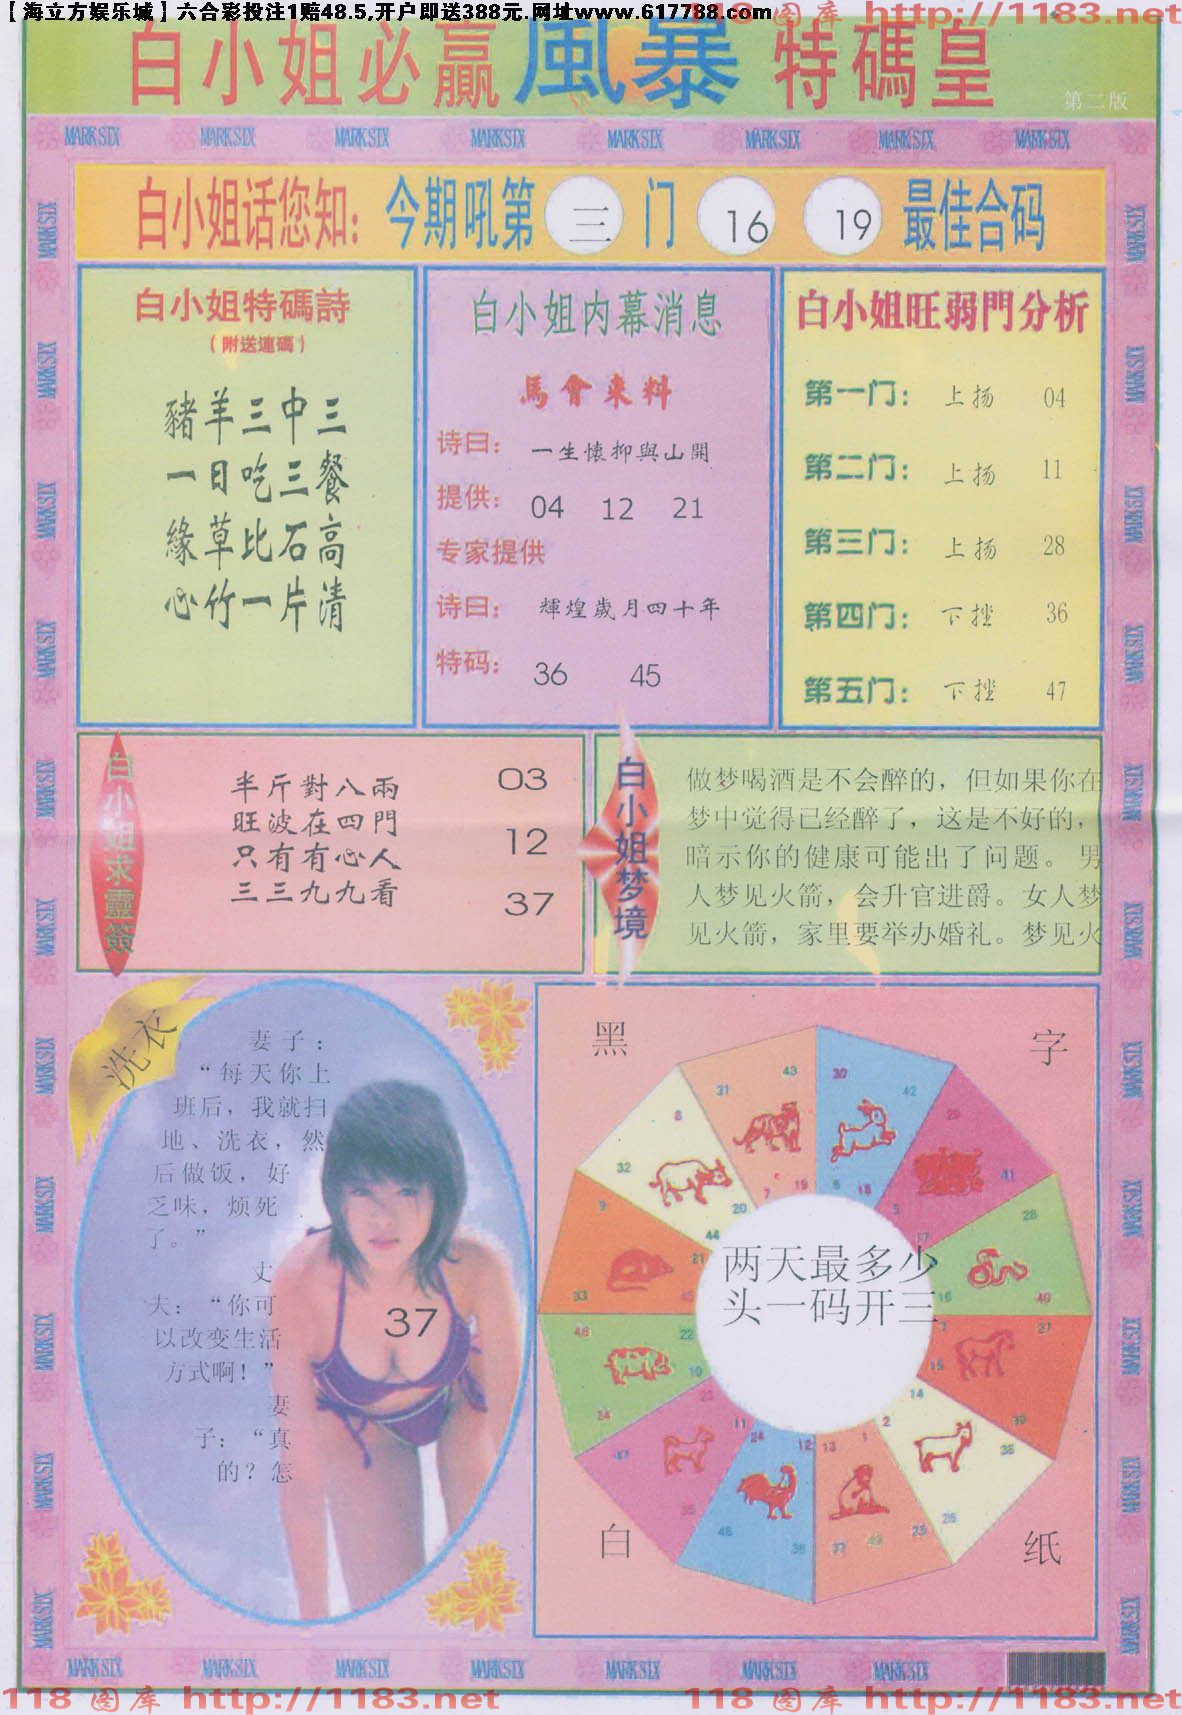 【海立方娱乐城】六合彩投注1赔48.5,开户即送388元.网址www.617788.com
118 图库 http://1183.net
白小姐必赢風暴特碼皇
第二版
MARK SIX MARK SIX MARK SIX MARK SIX MARK SIX MARK SIX MARK SIX MARK SIX
白小姐话您知: 今期吼第 三 门 16 19 最佳合码
白小姐特碼詩
(附送連碼)
豬羊三中三
一日吃三餐
緣草比石高
心竹一片清
白小姐内幕消息
馬會来料
诗曰: 一生懷抑與山開
提供: 04 12 21
专家提供
诗曰: 輝煌歲月四十年
特码: 36 45
白小姐旺弱門分析
第一门: 上扬 04
第二门: 上扬 11
第三门: 上扬 28
第四门: 下挫 36
第五门: 下挫 47
白小姐求靈簽
半斤對八兩
旺波在四門
只有有心人
三三九九看
03
12
37
白小姐梦境
做梦喝酒是不会醉的，但如果你在
梦中觉得已经醉了，这是不好的，
暗示你的健康可能出了问题。男
人梦见火箭，会升官进爵。女人梦
见火箭，家里要举办婚礼。梦见火
洗衣
妻子：
“每天你上
班后，我就扫
地、洗衣，然
后做饭，好
乏味，烦死
了。”
丈
夫：“你可
以改变生活
方式啊！”
妻
子：“真
的？怎
37
黑
字
两天最多少
头一码开三
白
纸
MARK SIX MARK SIX MARK SIX MARK SIX MARK SIX MARK SIX MARK SIX
118 图库 http://1183.net
118 图库 http://1183.net